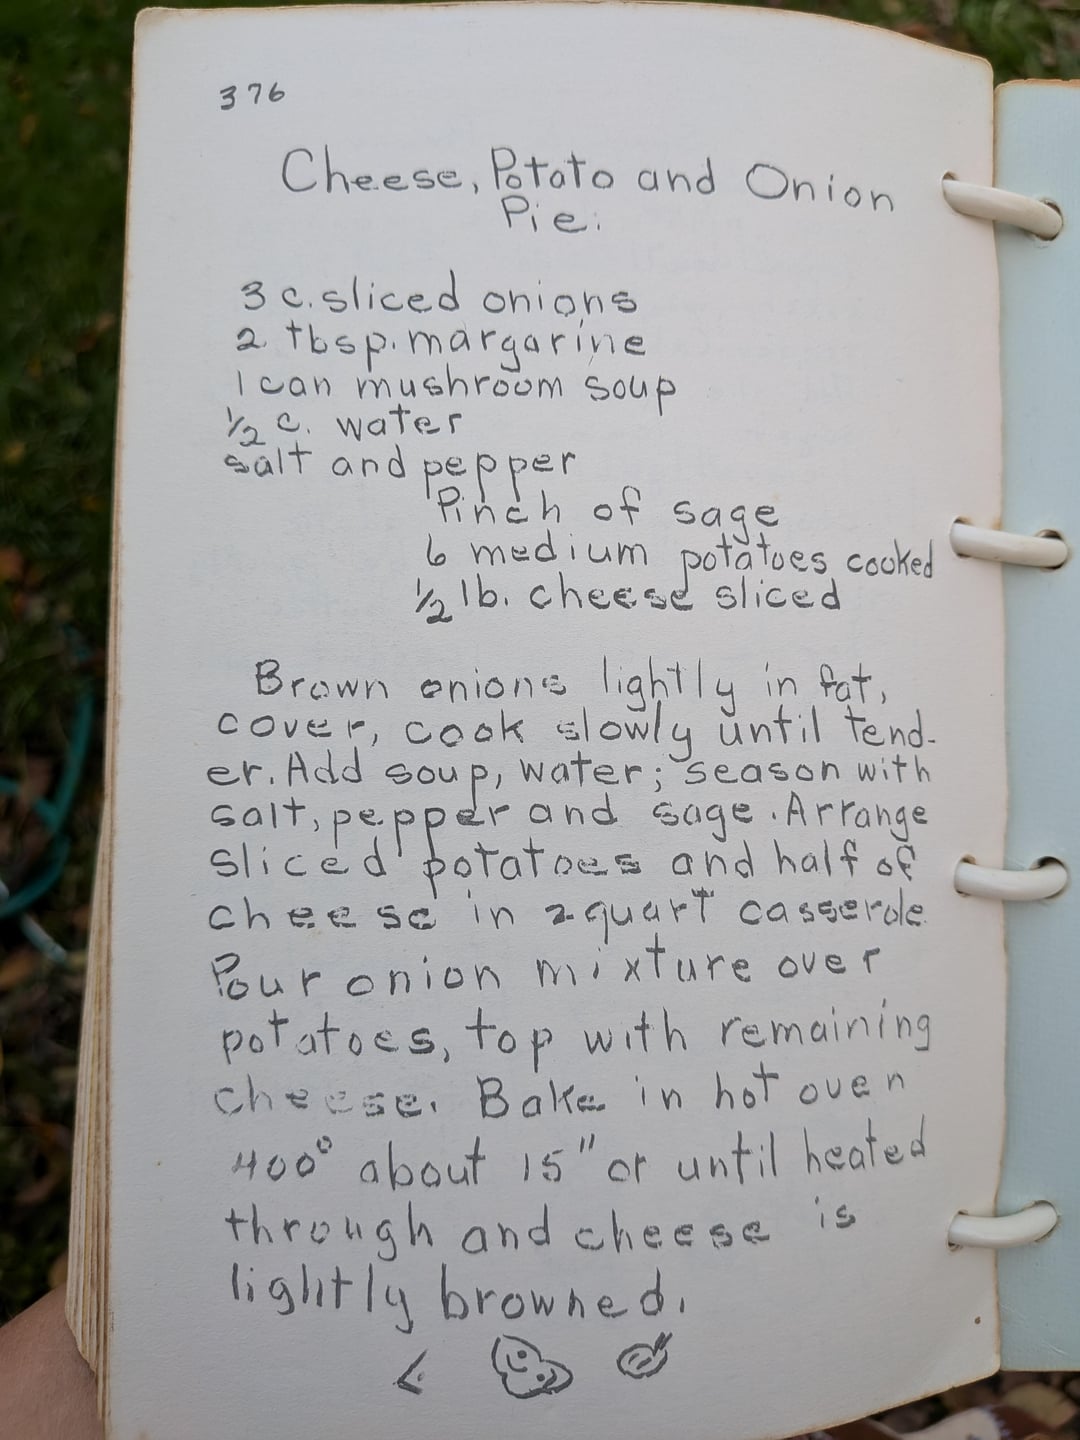 376
Cheese, Potato and Onion
Pie:
3 c. sliced onions
2 tbsp. margarine
1 can mushroom soup
½ c. water
salt and pepper
Pinch of sage
6 medium potatoes cooked
½ lb. cheese sliced
Brown onions lightly in fat,
cover, cook slowly until tend-
er. Add soup, water; season with
salt, pepper and sage. Arrange
sliced potatoes and half of
cheese in 2 quart casserole
Pour onion mixture over
potatoes, top with remaining
cheese. Bake in hot oven
400° about 15" or until heated
through and cheese is
lightly browned.